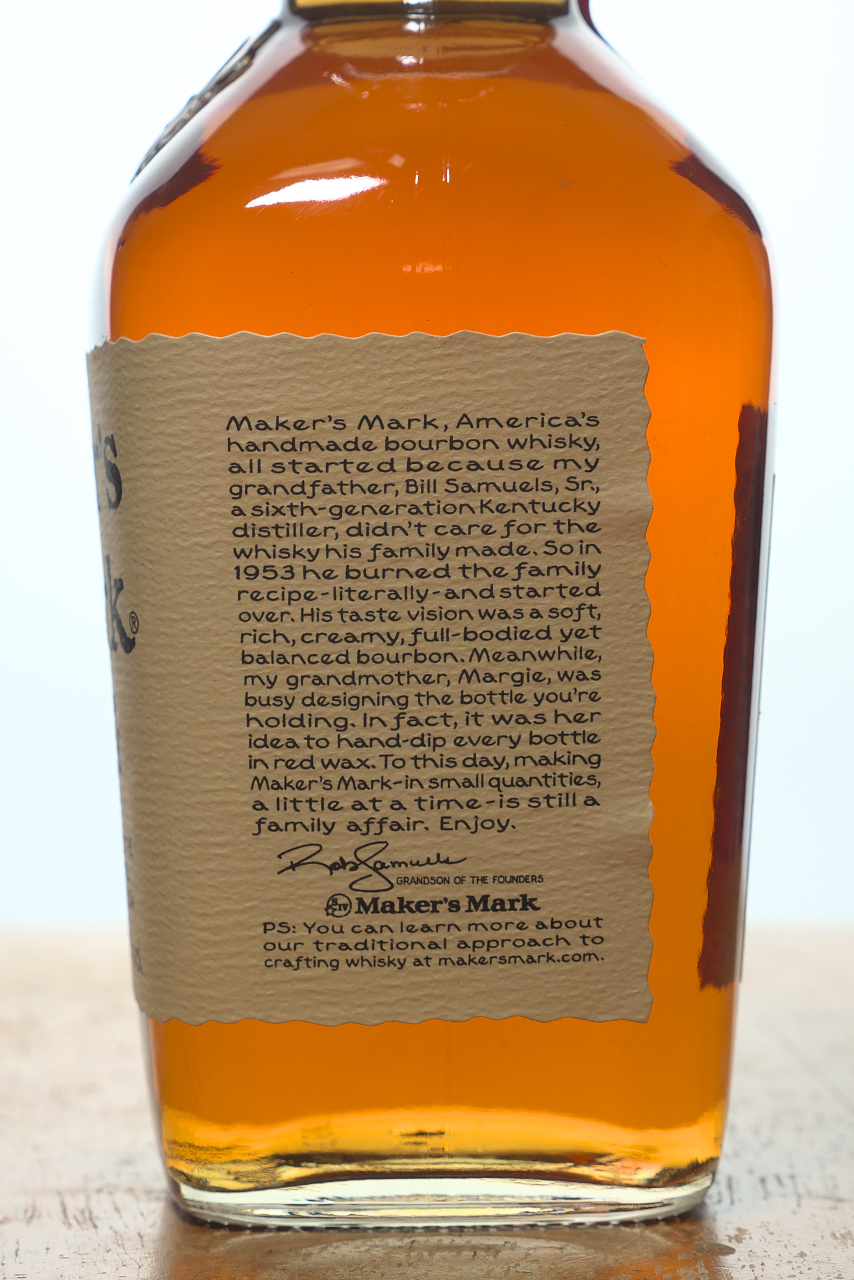 Maker's Mark, America's
handmade bourbon whisky,
all started because my
grandfather, Bill Samuels, Sr.,
a sixth-generation Kentucky
distiller, didn't care for the
whisky his family made. So in
1953 he burned the family
recipe-literally-and started
over. His taste vision was a soft,
rich, creamy, full-bodied yet
balanced bourbon. Meanwhile,
my grandmother, Margie, was
busy designing the bottle you're
holding. In fact, it was her
idea to hand-dip every bottle
in red wax. To this day, making
Maker's Mark-in small quantities,
a little at a time-is still a
family affair. Enjoy.
Rob Samuels
GRANDSON OF THE FOUNDERS
SIV Maker's Mark
PS: You can learn more about
our traditional approach to
crafting whisky at makersmark.com.
's
k®